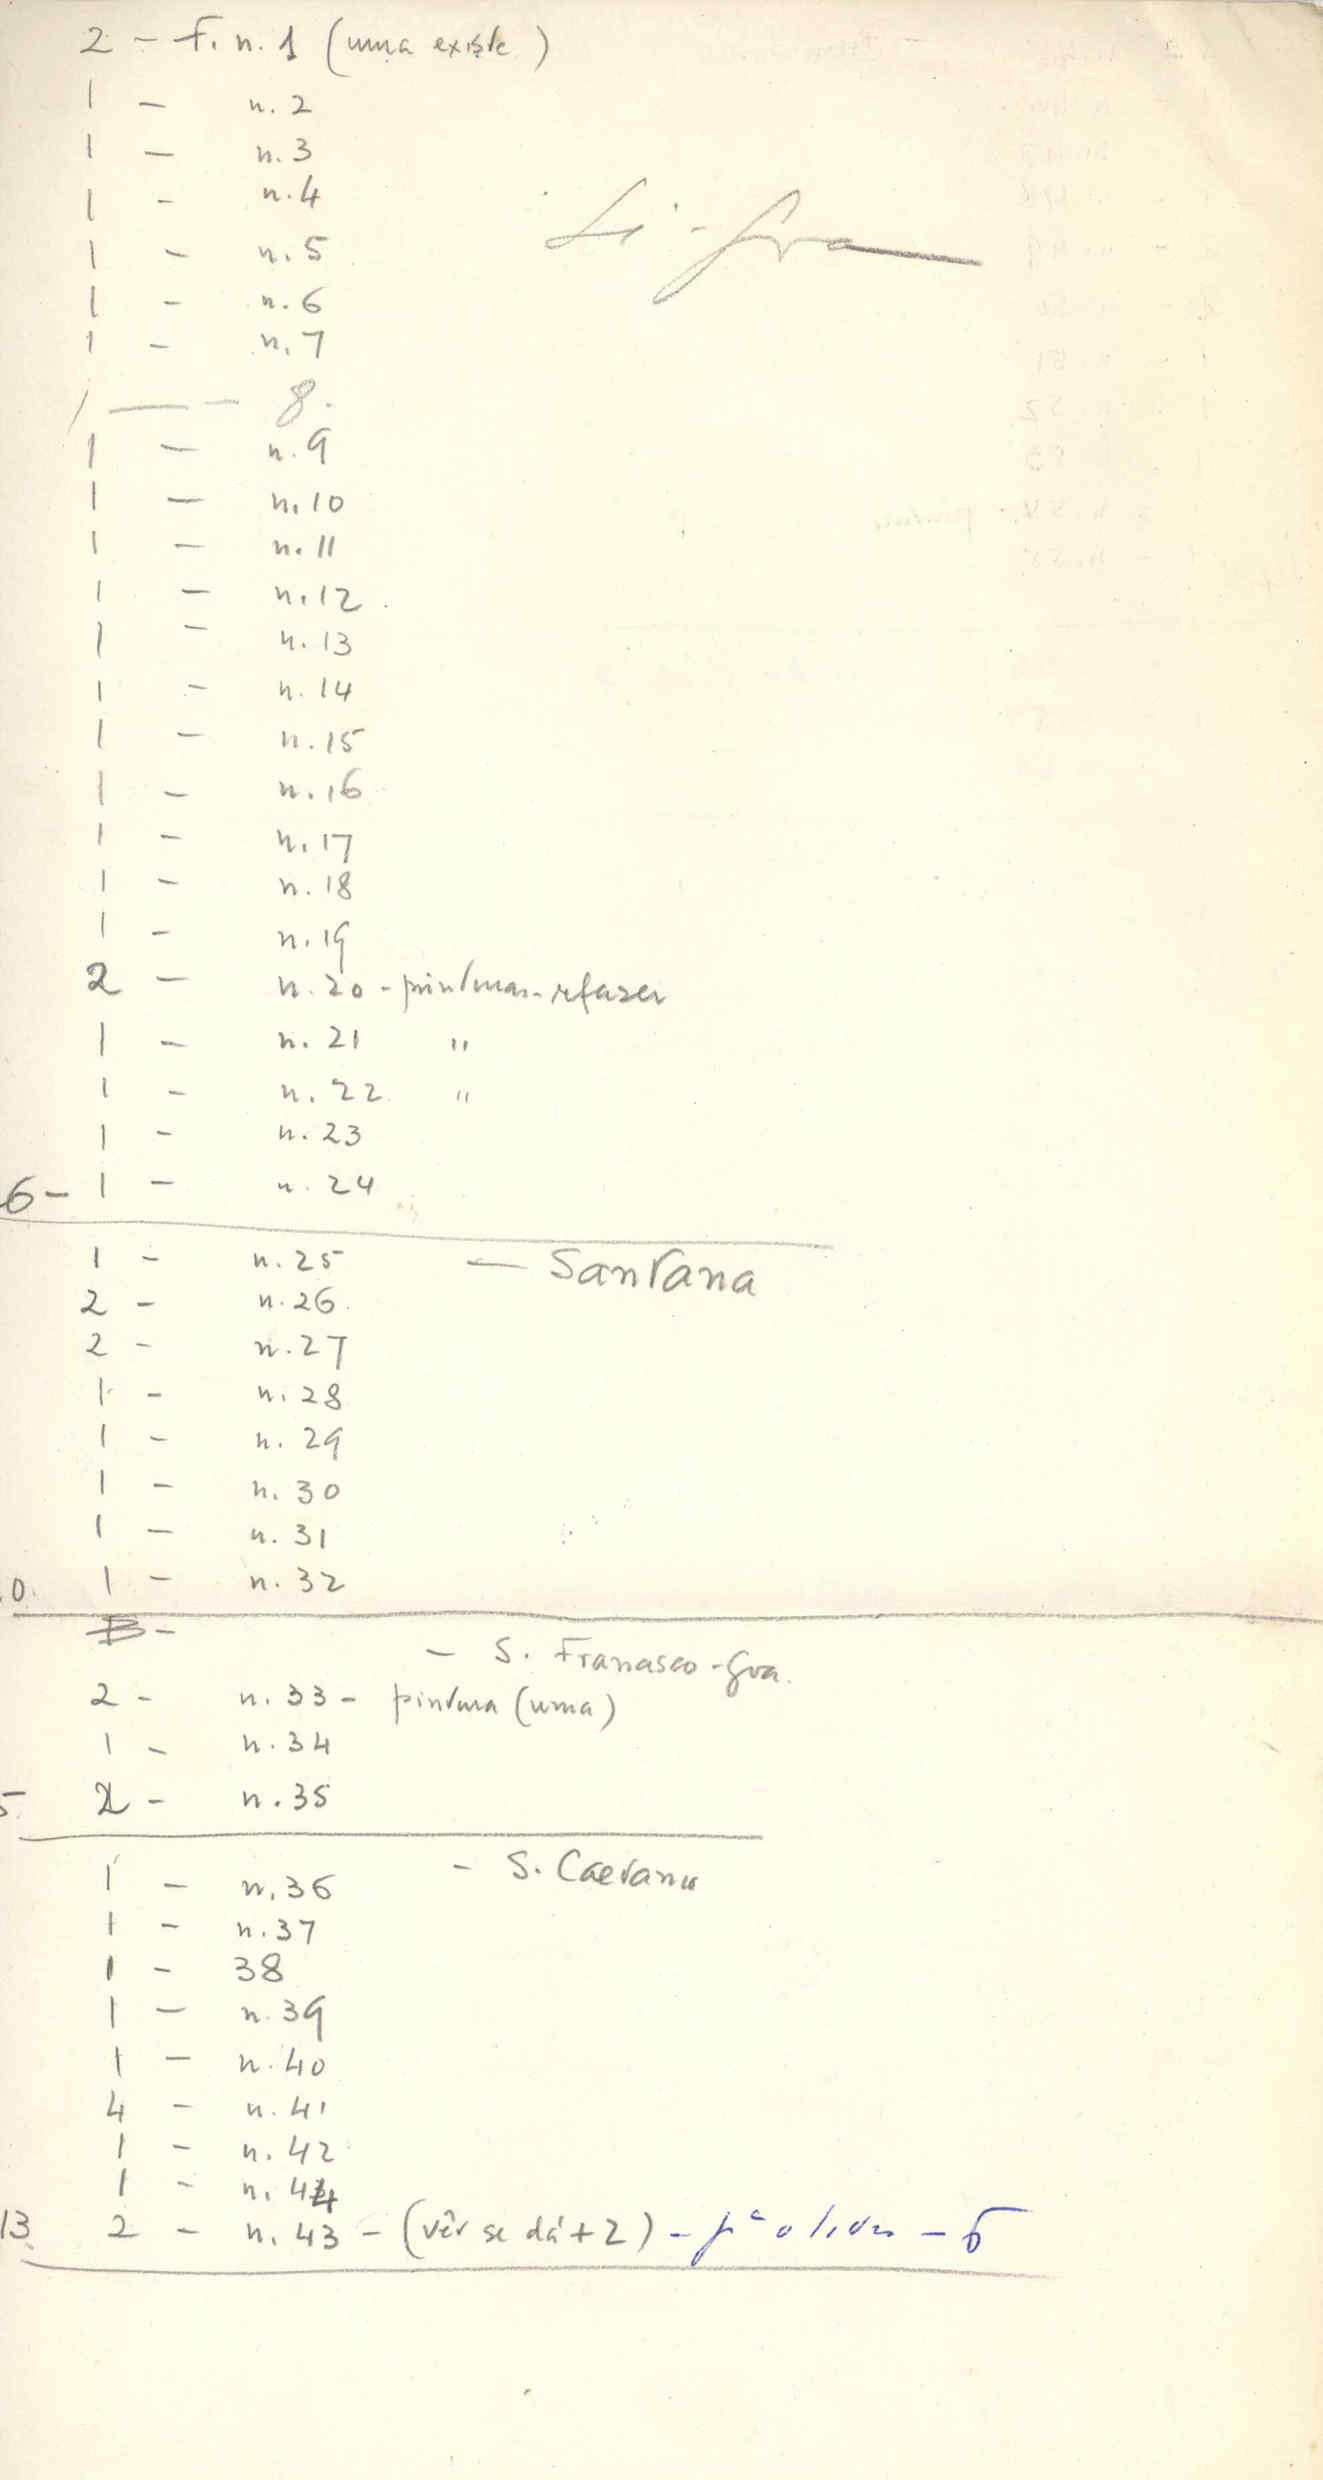 2 - F. n. 1 (uma existe)
1 - n. 2
1 - n. 3
1 - n. 4
Sé - Goa
1 - n. 5
1 - n. 6
1 - n. 7
1 - - 8.
1 - n. 9
1 - n. 10
1 - n. 11
1 - n. 12
1 - n. 13
1 - n. 14
1 - n. 15
1 - n. 16
1 - n. 17
1 - n. 18
1 - n. 19
2 - n. 20 - pinturas - refazer
1 - n. 21 "
1 - n. 22 "
1 - n. 23
6 - 1 - n. 24
1 - n. 25 - Santana
2 - n. 26
2 - n. 27
1 - n. 28
1 - n. 29
1 - n. 30
1 - n. 31
0. 1 - n. 32
B -
- S. Francisco - Goa.
2 - n. 33 - pintura (uma)
1 - n. 34
5 2 - n. 35
- S. Caetano
1 - n. 36
1 - n. 37
1 - 38
1 - n. 39
1 - n. 40
4 - n. 41
1 - n. 42
1 - n. 44
13 2 - n. 43 - (vêr se dá + 2) - pª o livro - 6